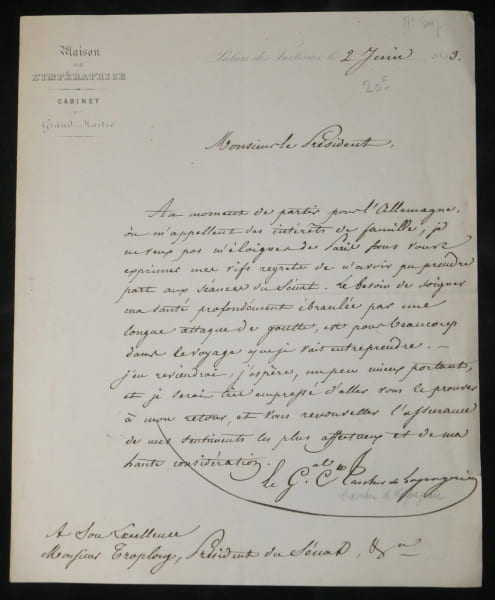 Maison
DE
L'IMPÉRATRICE
CABINET
du
Grand-Maître
Palais des Tuileries le 2 Juin 3.
20F
Monsieur le Président,
Au moment de partir pour l'Allemagne,
où m'appellent des intérêts de famille, je
ne veux pas m'éloigner de Paris sans vous
exprimer mes vifs regrets de n'avoir pu prendre
part aux séances du Sénat. Le besoin de soigner
ma santé profondément ébranlée par une
longue attaque de goutte, est pour beaucoup
dans le voyage que je vais entreprendre. —
J'en reviendrai, j'espère, un peu mieux portant,
et je serai très empressé d'aller vous le prouver
à mon retour, et vous renouveller l'assurance
de mes sentiments les plus affectueux et de ma
haute considération.
le Gal Cte Tascher de Lapagerie
Tascher de
A Son Excellence
Monsieur Troplong, Président du Sénat, &a